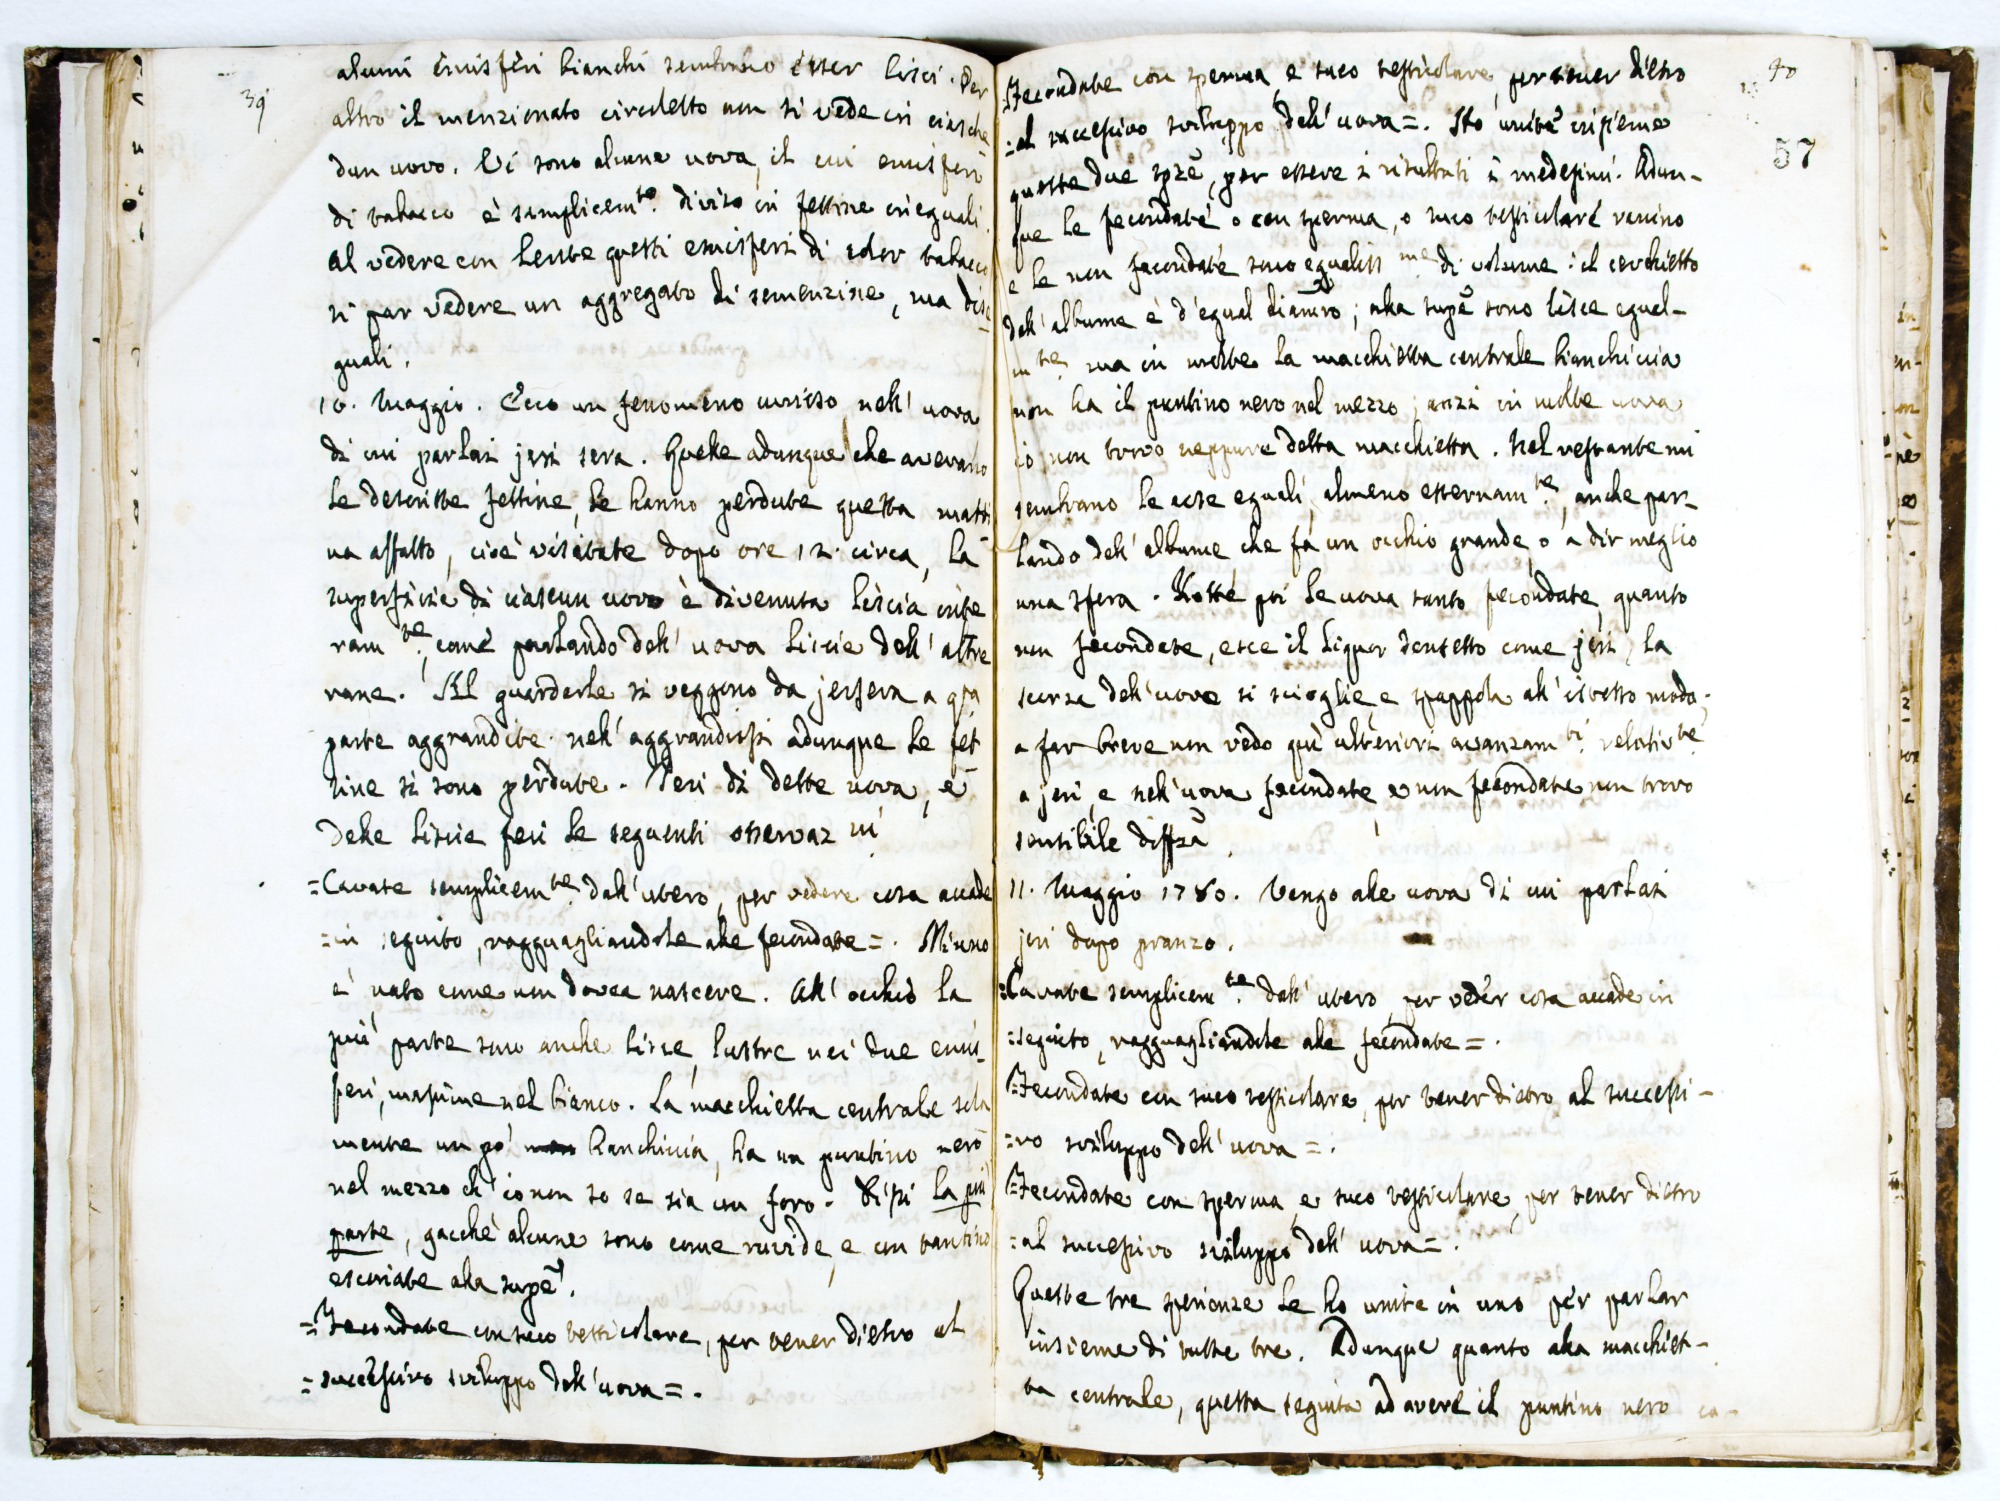 39
alcuni emisferi bianchi sembrano esser lisci. Per
altro il menzionato circoletto non si vede in ciasche
dun uovo. Vi sono alcune uova, il cui emisfero
di tabacco è semplicem.te diviso in fettine ineguali.
Al vedere con lente questi emisferi di color tabacco
si par vedere un aggregato di semenzine, ma dise
guali.
10. Maggio. Ecco un fenomeno curioso nell' uova
di cui parlai jeri sera. Quelle adunque che avevano
le descritte fettine, le hanno perdute questa matti
na affatto, cioè visitate dopo ore 12. circa, la
superfizie di ciascun uovo è divenuta liscia inte
ram.te, come parlando dell' uova liscie dell' altre
rane. Al guardarle si veggono da jersera a qta
parte aggrandite. nell' aggrandirsi adunque le fet
tine si sono perdute. Peri di dette uova, e
delle liscie feci le seguenti osservaz.ni
=Cavate semplicem.te dall' utero, per vedere cosa accade
=in seguito, ragguagliandole alle fecondate=. Niuno
è nato come non dovea nascere. All' occhio la
più parte sono anche liscie, lustre nei due emis-
feri, massime nel bianco. La macchietta centrale sola
mente un po' bianchiccia, ha un puntino nero
nel mezzo ch' io non so se sia un foro. Dissi la più
parte, giacchè alcune sono come ruvide, e un tantino
escoriate alla supe.
=Fecondate con suco testicolare, per tener dietro al
=successivo sviluppo dell' uova=.
40
57
=Fecondate con sperma, e suco testicolare, per tener dietro
=al successivo sviluppo dell' uova=. Ho unite insieme
queste due spze, per essere i risultati i medesimi. Adun-
que le fecondate o con sperma, o suco testicolare vicino
e le non fecondate sono egualiss.me di volume: il cerchietto
dell' albume è d'egual diamro; alla supe sono liscie egual-
m.te ma in molte la macchietta centrale bianchiccia
non ha il puntino nero nel mezzo; anzi in molte uova
io non trovo neppure detta macchietta. Nel restante mi
sembrano le cose eguali, almeno esternam.te, anche par-
lando dell' albume che fa un occhio grande, o a dir meglio
una sfera. Rotte poi le uova tanto fecondate, quanto
non fecondate, esce il liquor densetto come jeri, la
scorza dell' uovo si scioglie, e spappola all' istesso modo.
a far breve non vedo quì ulteriori avanzam.ti relativ.te
a jeri, e nell' uova fecondate, e non fecondate non trovo
sensibile diffza.
11. Maggio 1780. Vengo alle uova di cui parlai
jeri dopo pranzo.
=Cavate semplicem.te dall' utero, per veder cosa accade in
=seguito, ragguagliandole alle fecondate=.
=Fecondate con suco testicolare, per tener dietro al successi-
=vo sviluppo dell' uova=.
=Fecondate con sperma, e suco testicolare, per tener dietro
=al successivo sviluppo dell' uova=.
Queste tre sperienze le ho unite in uno per parlar
insieme di tutte tre. Adunque quanto alla macchiet-
ta centrale, questa seguita ad avere il puntino nero co-